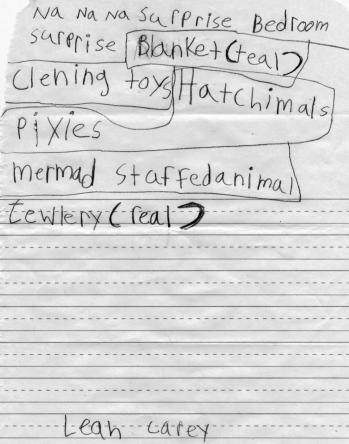 Na Na Na Surprise Bedroom
surprise Blanket(teal)
Clening toys Hatchimals
Pixies
mermad staffedanimal
tewlery(real)
Leah Carey